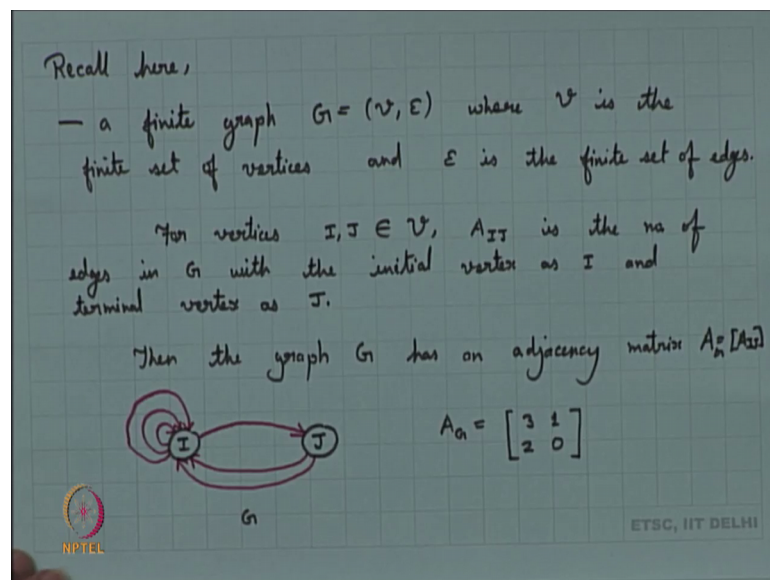 Recall here,
— a finite graph G = (V, E) where V is the
finite set of vertices and E is the finite set of edges.
For vertices I, J ∈ V, A_IJ is the no of
edges in G with the initial vertex as I and
terminal vertex as J.
Then the graph G has an adjacency matrix A_G = [A_IJ]
I J A_G = [3 1
2 0]
G
NPTEL
ETSC, IIT DELHI